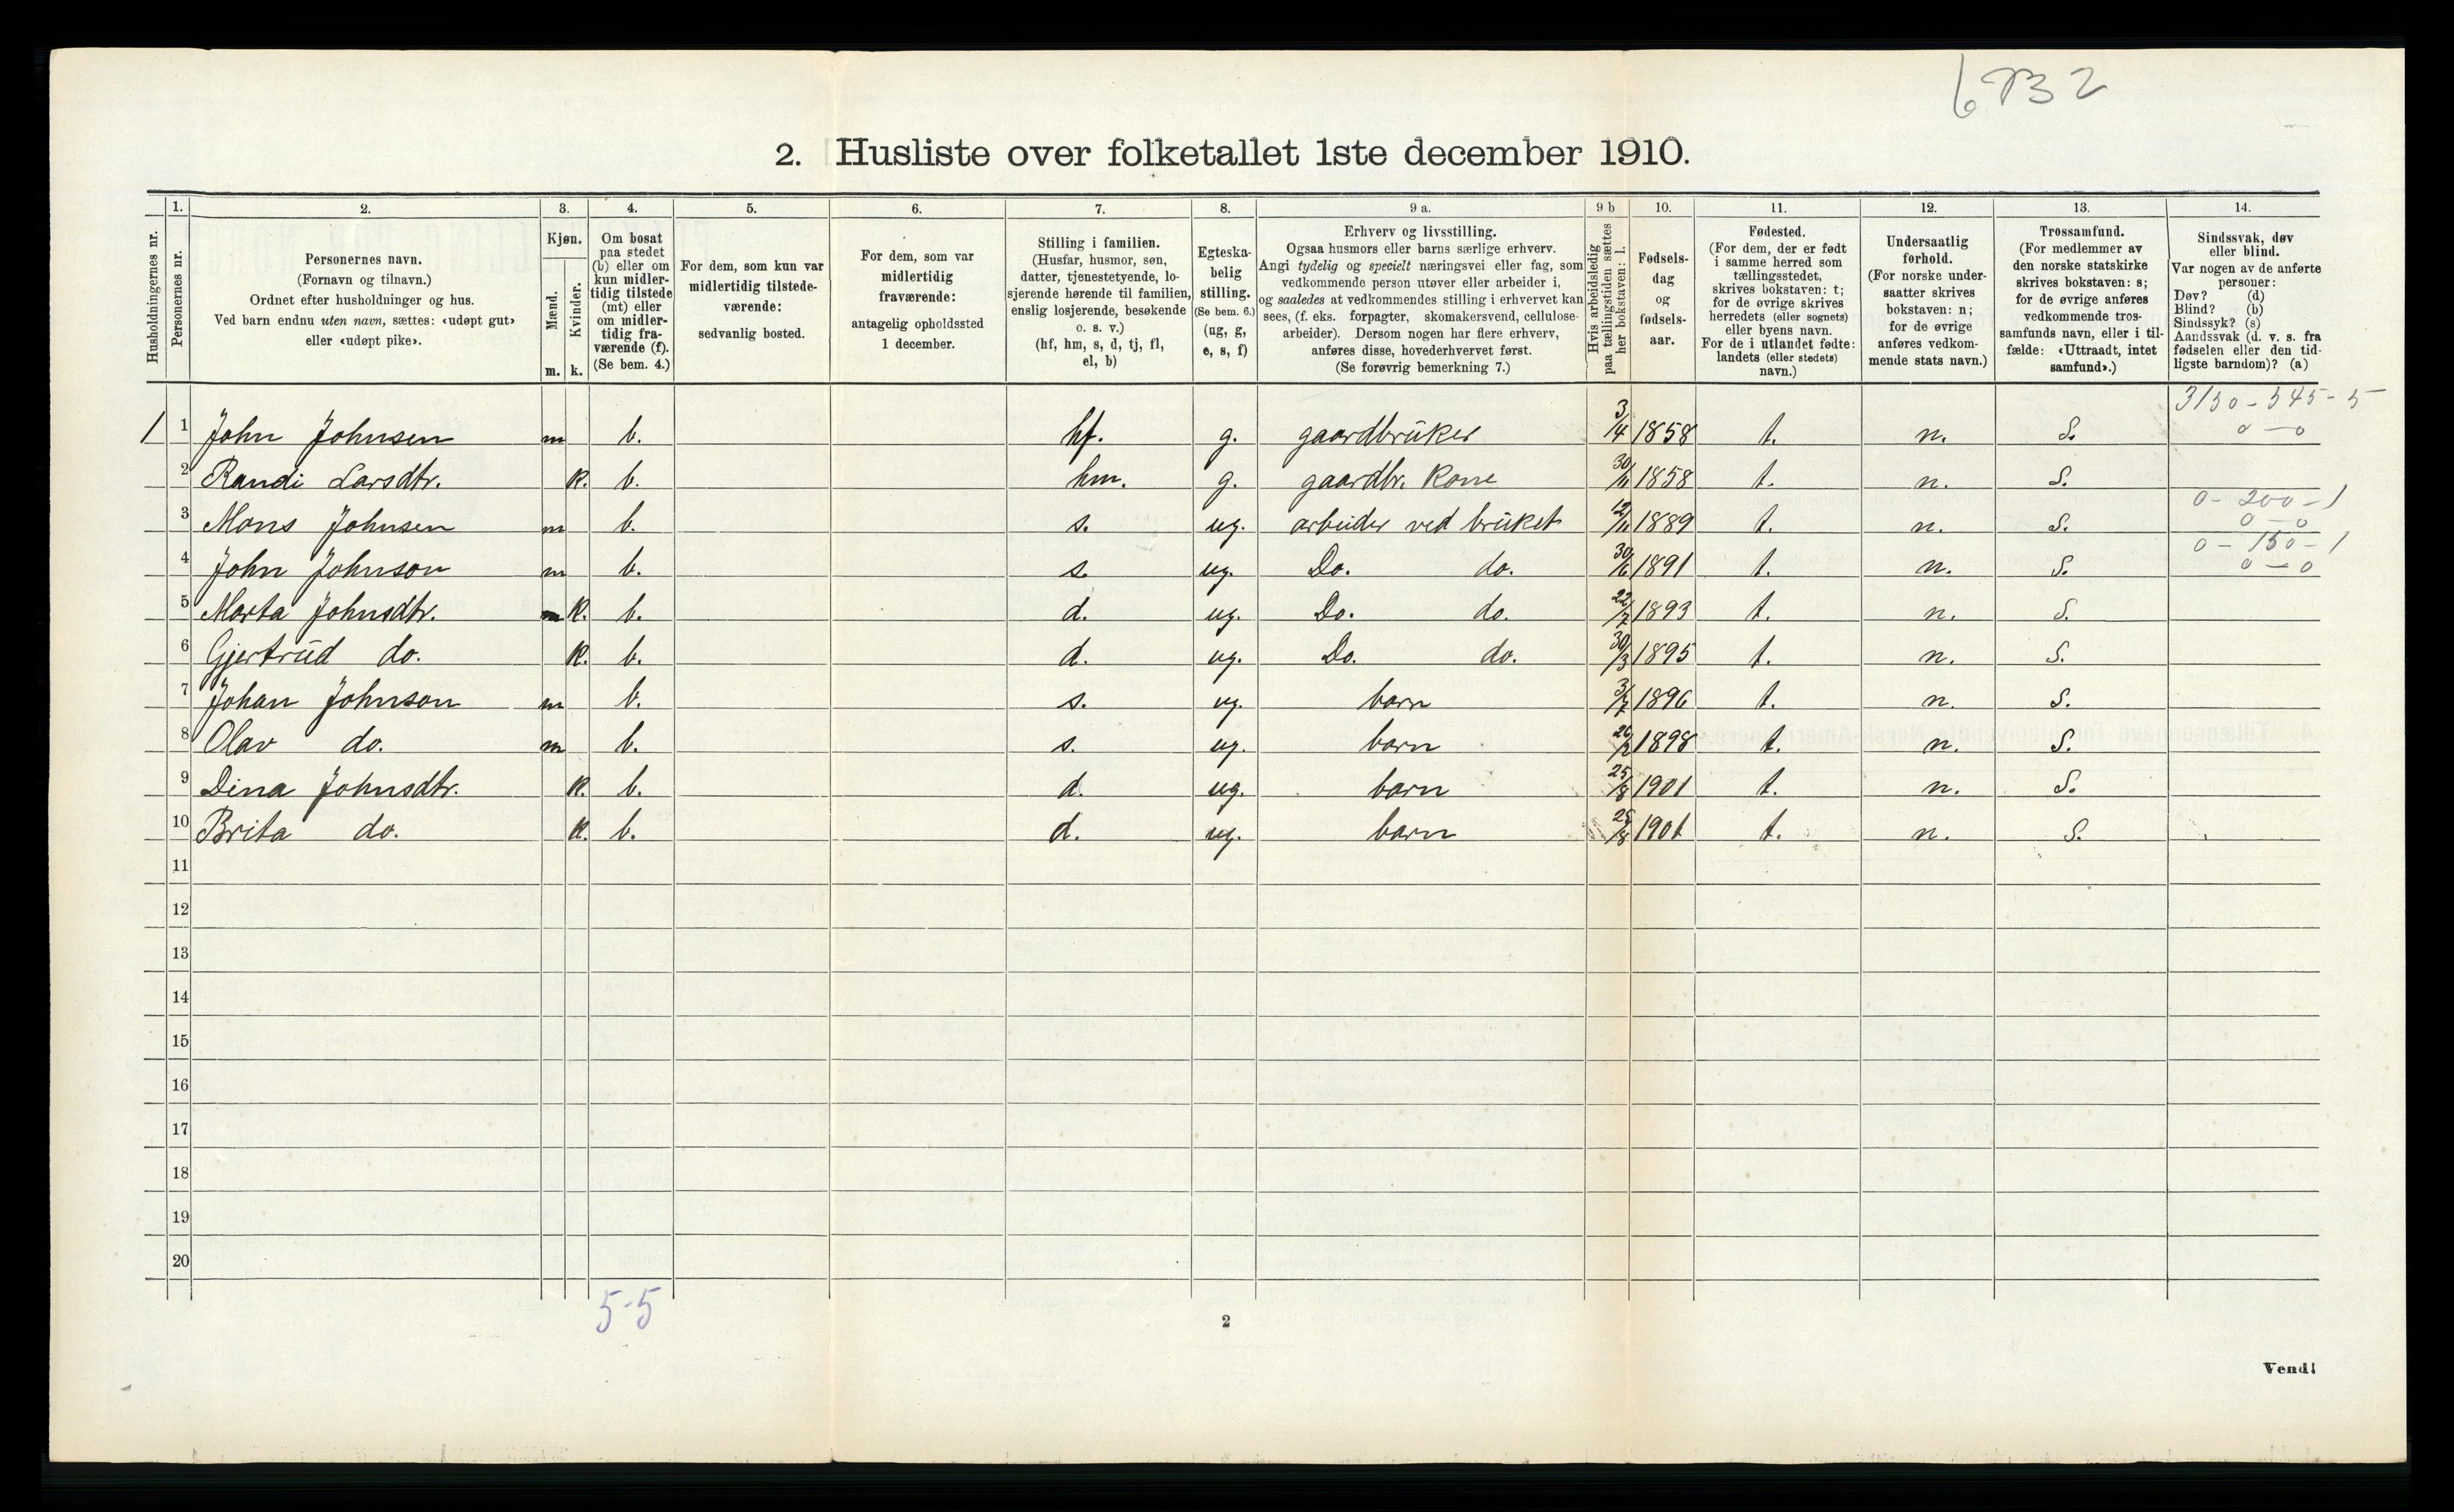 6732
2. Husliste over folketallet 1ste december 1910.
Husholdningernes nr.
1. Personernes nr.
2. Personernes navn. (Fornavn og tilnavn.) Ordnet efter husholdninger og hus. Ved barn endnu uten navn, sættes: «udøpt gut» eller «udøpt pike».
3. Kjøn. Mænd. m. Kvinder. k.
4. Om bosat paa stedet (b) eller om kun midlertidig tilstede (mt) eller om midlertidig fraværende (f). (Se bem. 4.)
5. For dem, som kun var midlertidig tilstedeværende: sedvanlig bosted.
6. For dem, som var midlertidig fraværende: antagelig opholdssted 1 december.
7. Stilling i familien. (Husfar, husmor, søn, datter, tjenestetyende, losjerende hørende til familien, enslig losjerende, besøkende o. s. v.) (hf, hm, s, d, tj, fl, el, b)
8. Egteskabelig stilling. (Se bem. 6.) (ug, g, e, s, f)
9 a. Erhverv og livsstilling. Ogsaa husmors eller barns særlige erhverv. Angi tydelig og specielt næringsvei eller fag, som vedkommende person utøver eller arbeider i, og saaledes at vedkommendes stilling i erhvervet kan sees, (f. eks. forpagter, skomakersvend, cellulosearbeider). Dersom nogen har flere erhverv, anføres disse, hovederhvervet først. (Se forøvrig bemerkning 7.)
9 b Hvis arbeidsledig paa tællingstiden sættes her bokstaven: l.
10. Fødselsdag og fødselsaar.
11. Fødested. (For dem, der er født i samme herred som tællingsstedet, skrives bokstaven: t; for de øvrige skrives herredets (eller sognets) eller byens navn. For de i utlandet fødte: landets (eller stedets) navn.)
12. Undersaatlig forhold. (For norske undersaatter skrives bokstaven: n; for de øvrige anføres vedkommende stats navn.)
13. Trossamfund. (For medlemmer av den norske statskirke skrives bokstaven: s; for de øvrige anføres vedkommende trossamfunds navn, eller i tilfælde: «Uttraadt, intet samfund».)
14. Sindssvak, døv eller blind. Var nogen av de anførte personer: Døv? (d) Blind? (b) Sindssyk? (s) Aandssvak (d. v. s. fra fødselen eller den tidligste barndom)? (a)
3150 - 545 - 5
1 1 John Johnsen m b. hf. g. gaardbruker 3/4 1858 t. n. S. 0 - 0
2 Randi Larsdtr. k. b. hm. g. gaardbr. Kone 30/11 1858 t. n. S.
0 - 200 - 1
3 Mons Johnsen m b. s. ug. arbeider ved bruket 12/11 1889 t. n. S. 0 - 0
0 - 150 - 1
4 John Johnson m b. s. ug. Do. do. 30/6 1891 t. n. S. 0 - 0
5 Marta Johnsdtr. k. b. d. ug. Do. do. 22/7 1893 t. n. S.
6 Gjertrud do. k. b. d. ug. Do. do. 30/3 1895 t. n. S.
7 Johan Johnson m b. s. ug. barn 3/7 1896 t. n. S.
8 Olav do. m b. s. ug. barn 1898 t. n. S.
9 Dina Johnsdtr. k. b. d. ug. barn 25/8 1901 t. n. S.
10 Brita do. k. b. d. ug. barn 25/8 1901 t. n. S.
11
12
13
14
15
16
17
18
19
20
5-5
2
Vend!